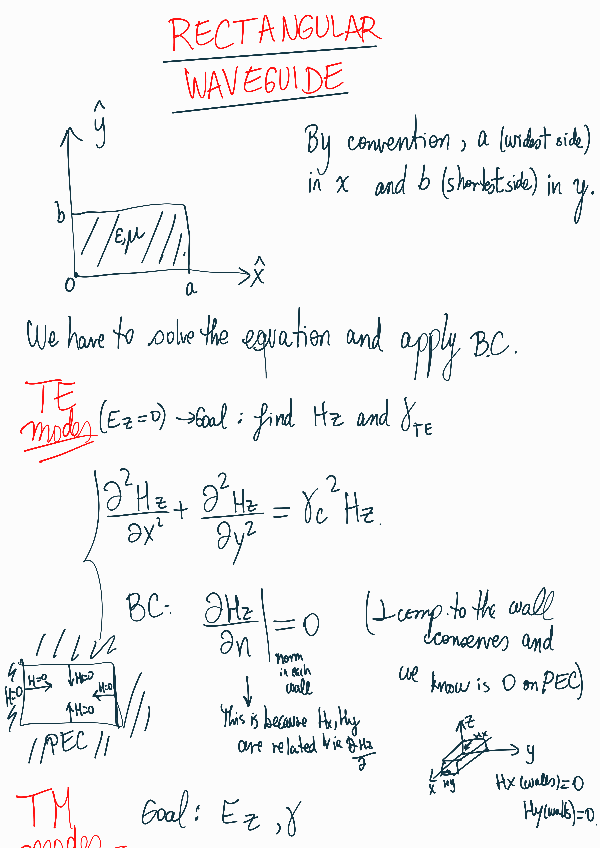 RECTANGULAR
WAVEGUIDE
ŷ
By convention, a (widest side)
in x and b (shortest side) in y.
b
ε,μ
0
a
x̂
We have to solve the equation and apply B.C.
TE
modes (Ez=0) → Goal: find Hz and γTE
∂²Hz/∂x² + ∂²Hz/∂y² = γc² Hz.
BC: ∂Hz/∂n | = 0 (⊥ comp. to the wall
norm
in each
wall
conserves and
we know is 0 on PEC)
H=0
H=0
H=0
H=0
H=0
PEC
This is because Hx, Hy
are related via ∂Hz/∂
z
Hx
y
x
Hy
Hx (walls)=0
Hy (walls)=0.
TM
modes
Goal: Ez, γ